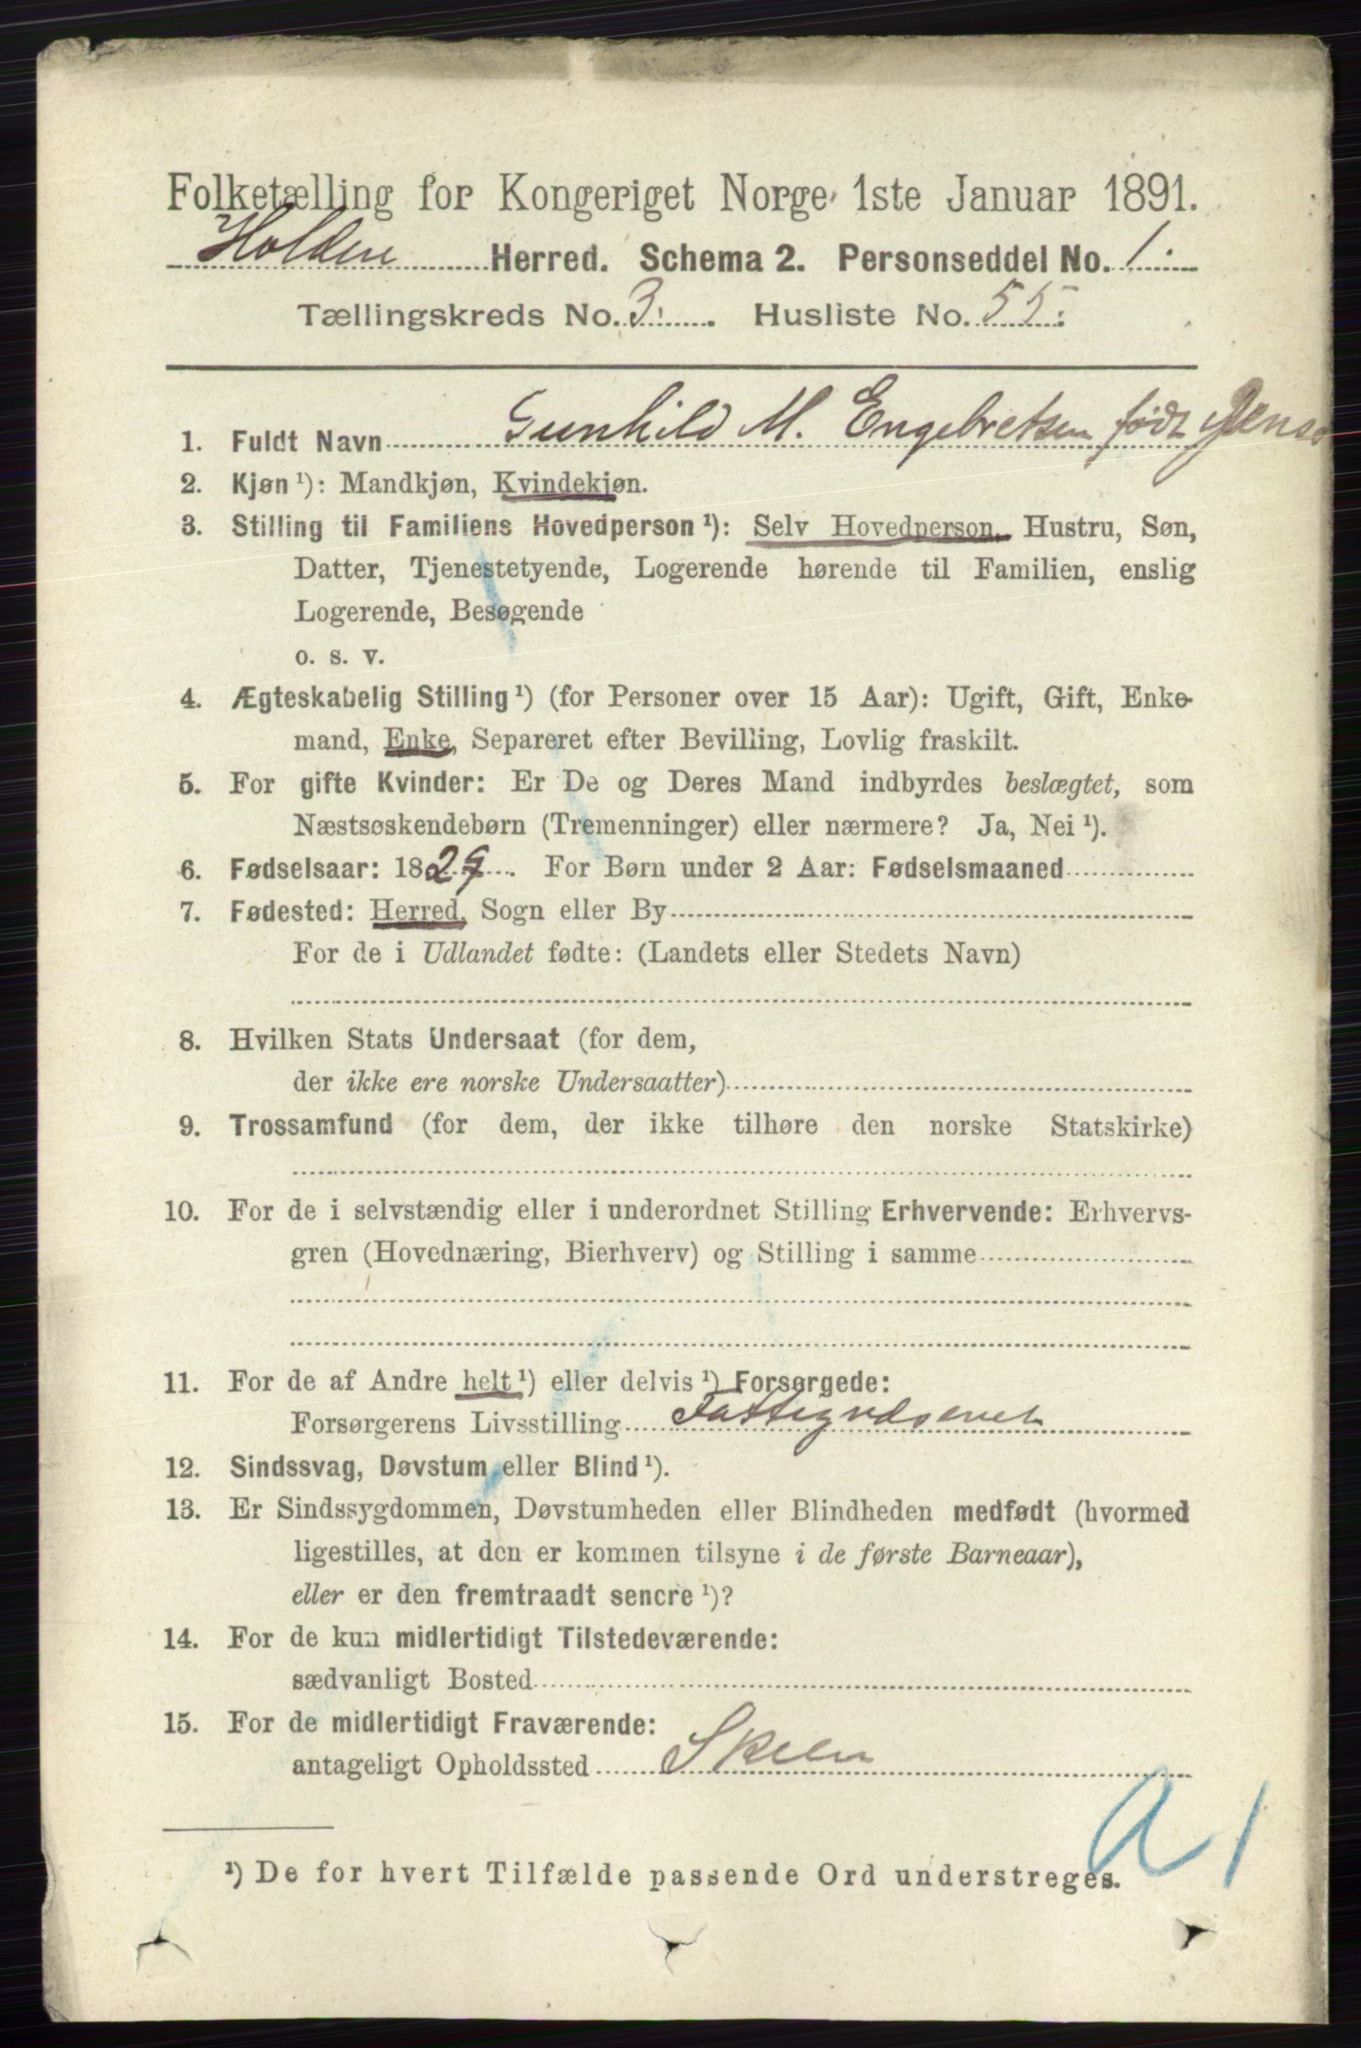 Folketælling for Kongeriget Norge 1ste Januar 1891.
Holden Herred. Schema 2. Personseddel No. 1.
Tællingskreds No. 3. Husliste No. 55.
1. Fuldt Navn Gunhild M. Engebretsen født Jens
2. Kjøn ¹): Mandkjøn, Kvindekjøn.
3. Stilling til Familiens Hovedperson ¹): Selv Hovedperson, Hustru, Søn,
Datter, Tjenestetyende, Logerende hørende til Familien, enslig
Logerende, Besøgende
o. s. v.
4. Ægteskabelig Stilling ¹) (for Personer over 15 Aar): Ugift, Gift, Enke-
mand, Enke, Separeret efter Bevilling, Lovlig fraskilt.
5. For gifte Kvinder: Er De og Deres Mand indbyrdes beslægtet, som
Næstsøskendebørn (Tremenninger) eller nærmere? Ja, Nei ¹).
6. Fødselsaar: 1829. For Børn under 2 Aar: Fødselsmaaned
7. Fødested: Herred, Sogn eller By
For de i Udlandet fødte: (Landets eller Stedets Navn)
8. Hvilken Stats Undersaat (for dem,
der ikke ere norske Undersaatter)
9. Trossamfund (for dem, der ikke tilhøre den norske Statskirke)
10. For de i selvstændig eller i underordnet Stilling Erhvervende: Erhvervs-
gren (Hovednæring, Bierhverv) og Stilling i samme
11. For de af Andre helt ¹) eller delvis ¹) Forsørgede:
Forsørgerens Livsstilling Fattigvæsenet
12. Sindssvag, Døvstum eller Blind ¹).
13. Er Sindssygdommen, Døvstumheden eller Blindheden medfødt (hvormed
ligestilles, at den er kommen tilsyne i de første Barneaar),
eller er den fremtraadt senere ¹)?
14. For de kun midlertidigt Tilstedeværende:
sædvanligt Bosted
15. For de midlertidigt Fraværende:
antageligt Opholdssted Skien
a 1
¹) De for hvert Tilfælde passende Ord understreges.